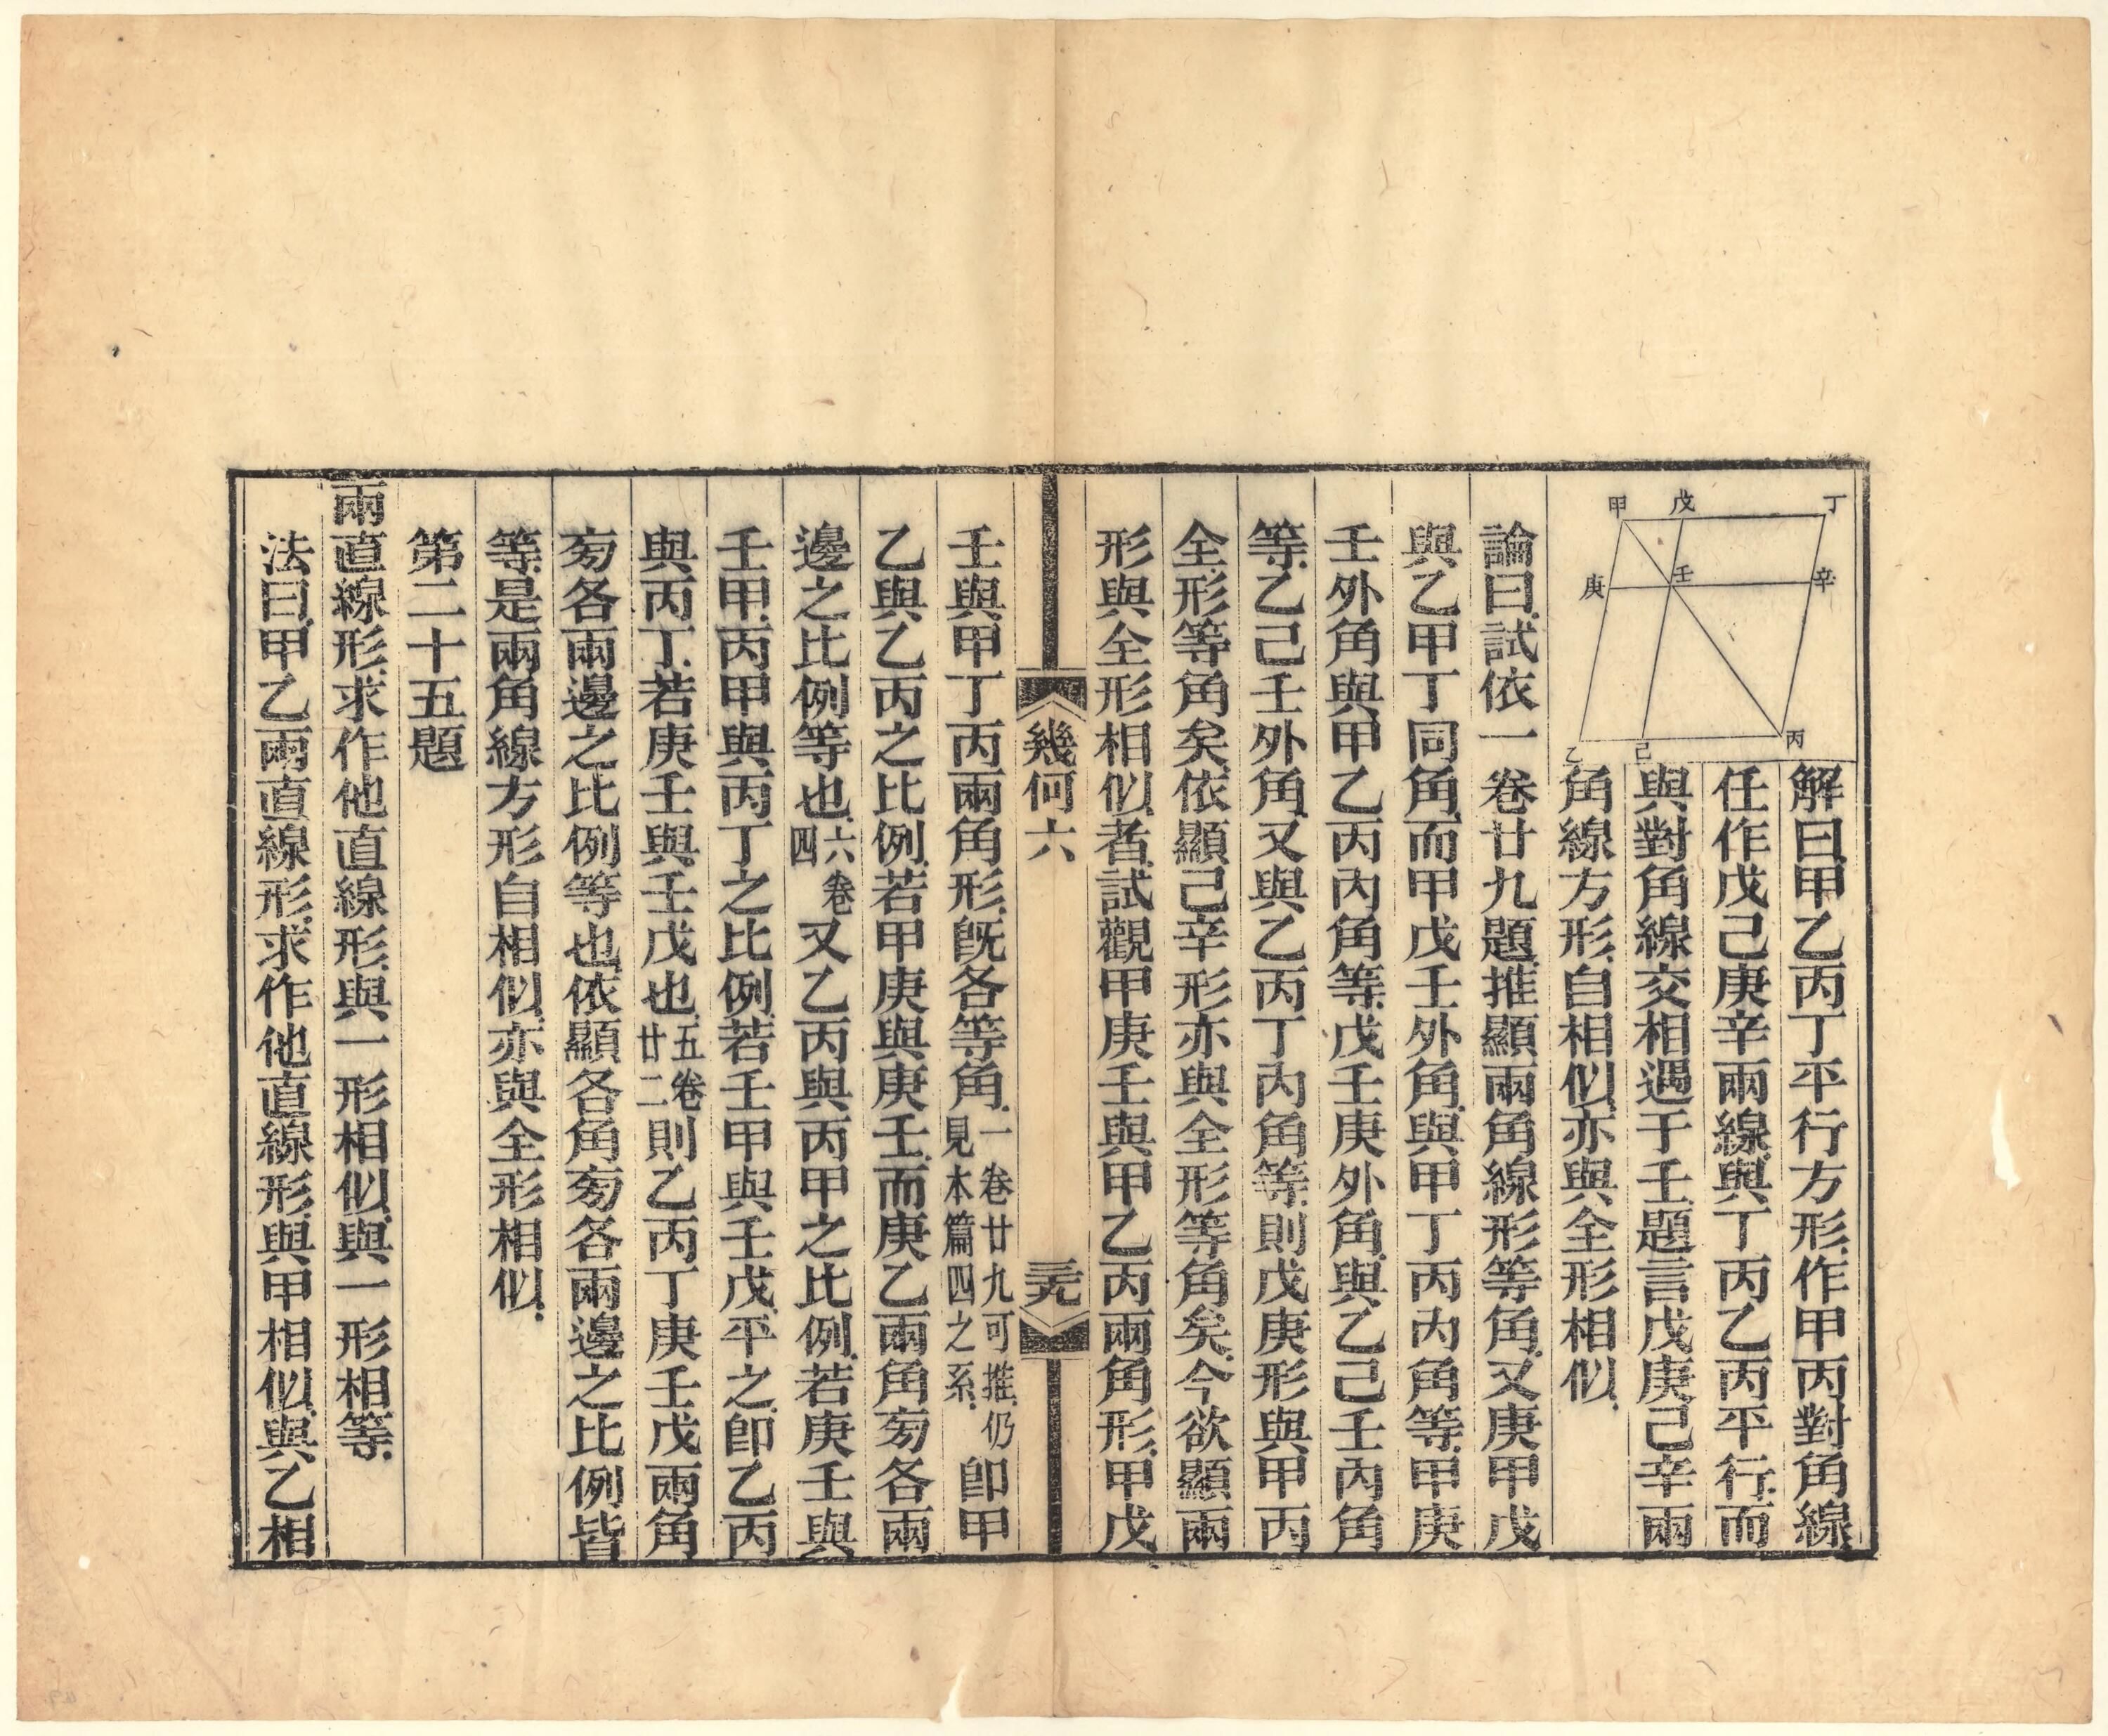 甲 戊 丁
庚 壬 辛
乙 己 丙
解曰甲乙丙丁平行方形作甲丙對角線
任作戊己庚辛兩線與丁丙乙丙平行而
與對角線交相遇于壬題言戊庚己辛兩
角線方形自相似亦與全形相似
論曰試依一卷廿九題推顯兩角線形等角又庚甲戊
與乙甲丁同角而甲戊壬外角與甲丁丙內角等甲庚
壬外角與甲乙丙內角等戊壬庚外角與乙己壬內角
等乙己壬外角又與乙丙丁內角等則戊庚形與甲丙
全形等角矣依顯己辛形亦與全形等角矣今欲顯兩
形與全形相似者試觀甲庚壬與甲乙丙兩角形甲戊
幾何六 三九
壬與甲丁丙兩角形旣各等角一卷廿九可推仍見本篇四之系卽甲
乙與乙丙之比例若甲庚與庚壬而庚乙兩角旁各兩
邊之比例等也六卷四又乙丙與丙甲之比例若庚壬與
壬甲丙甲與丙丁之比例若壬甲與壬戊平之卽乙丙
與丙丁若庚壬與壬戊也五卷廿二則乙丙丁庚壬戊兩角
旁各兩邊之比例等也依顯各角旁各兩邊之比例皆
等是兩角線方形自相似亦與全形相似
第二十五題
兩直線形求作他直線形與一形相似與一形相等
法曰甲乙兩直線形求作他直線形與甲相似與乙相